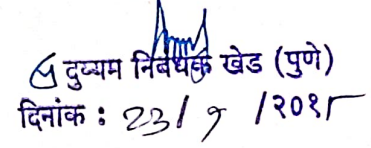 दुय्यम निबंधक खेड (पुणे)
दिनांक : 23/ 9 /२०१८